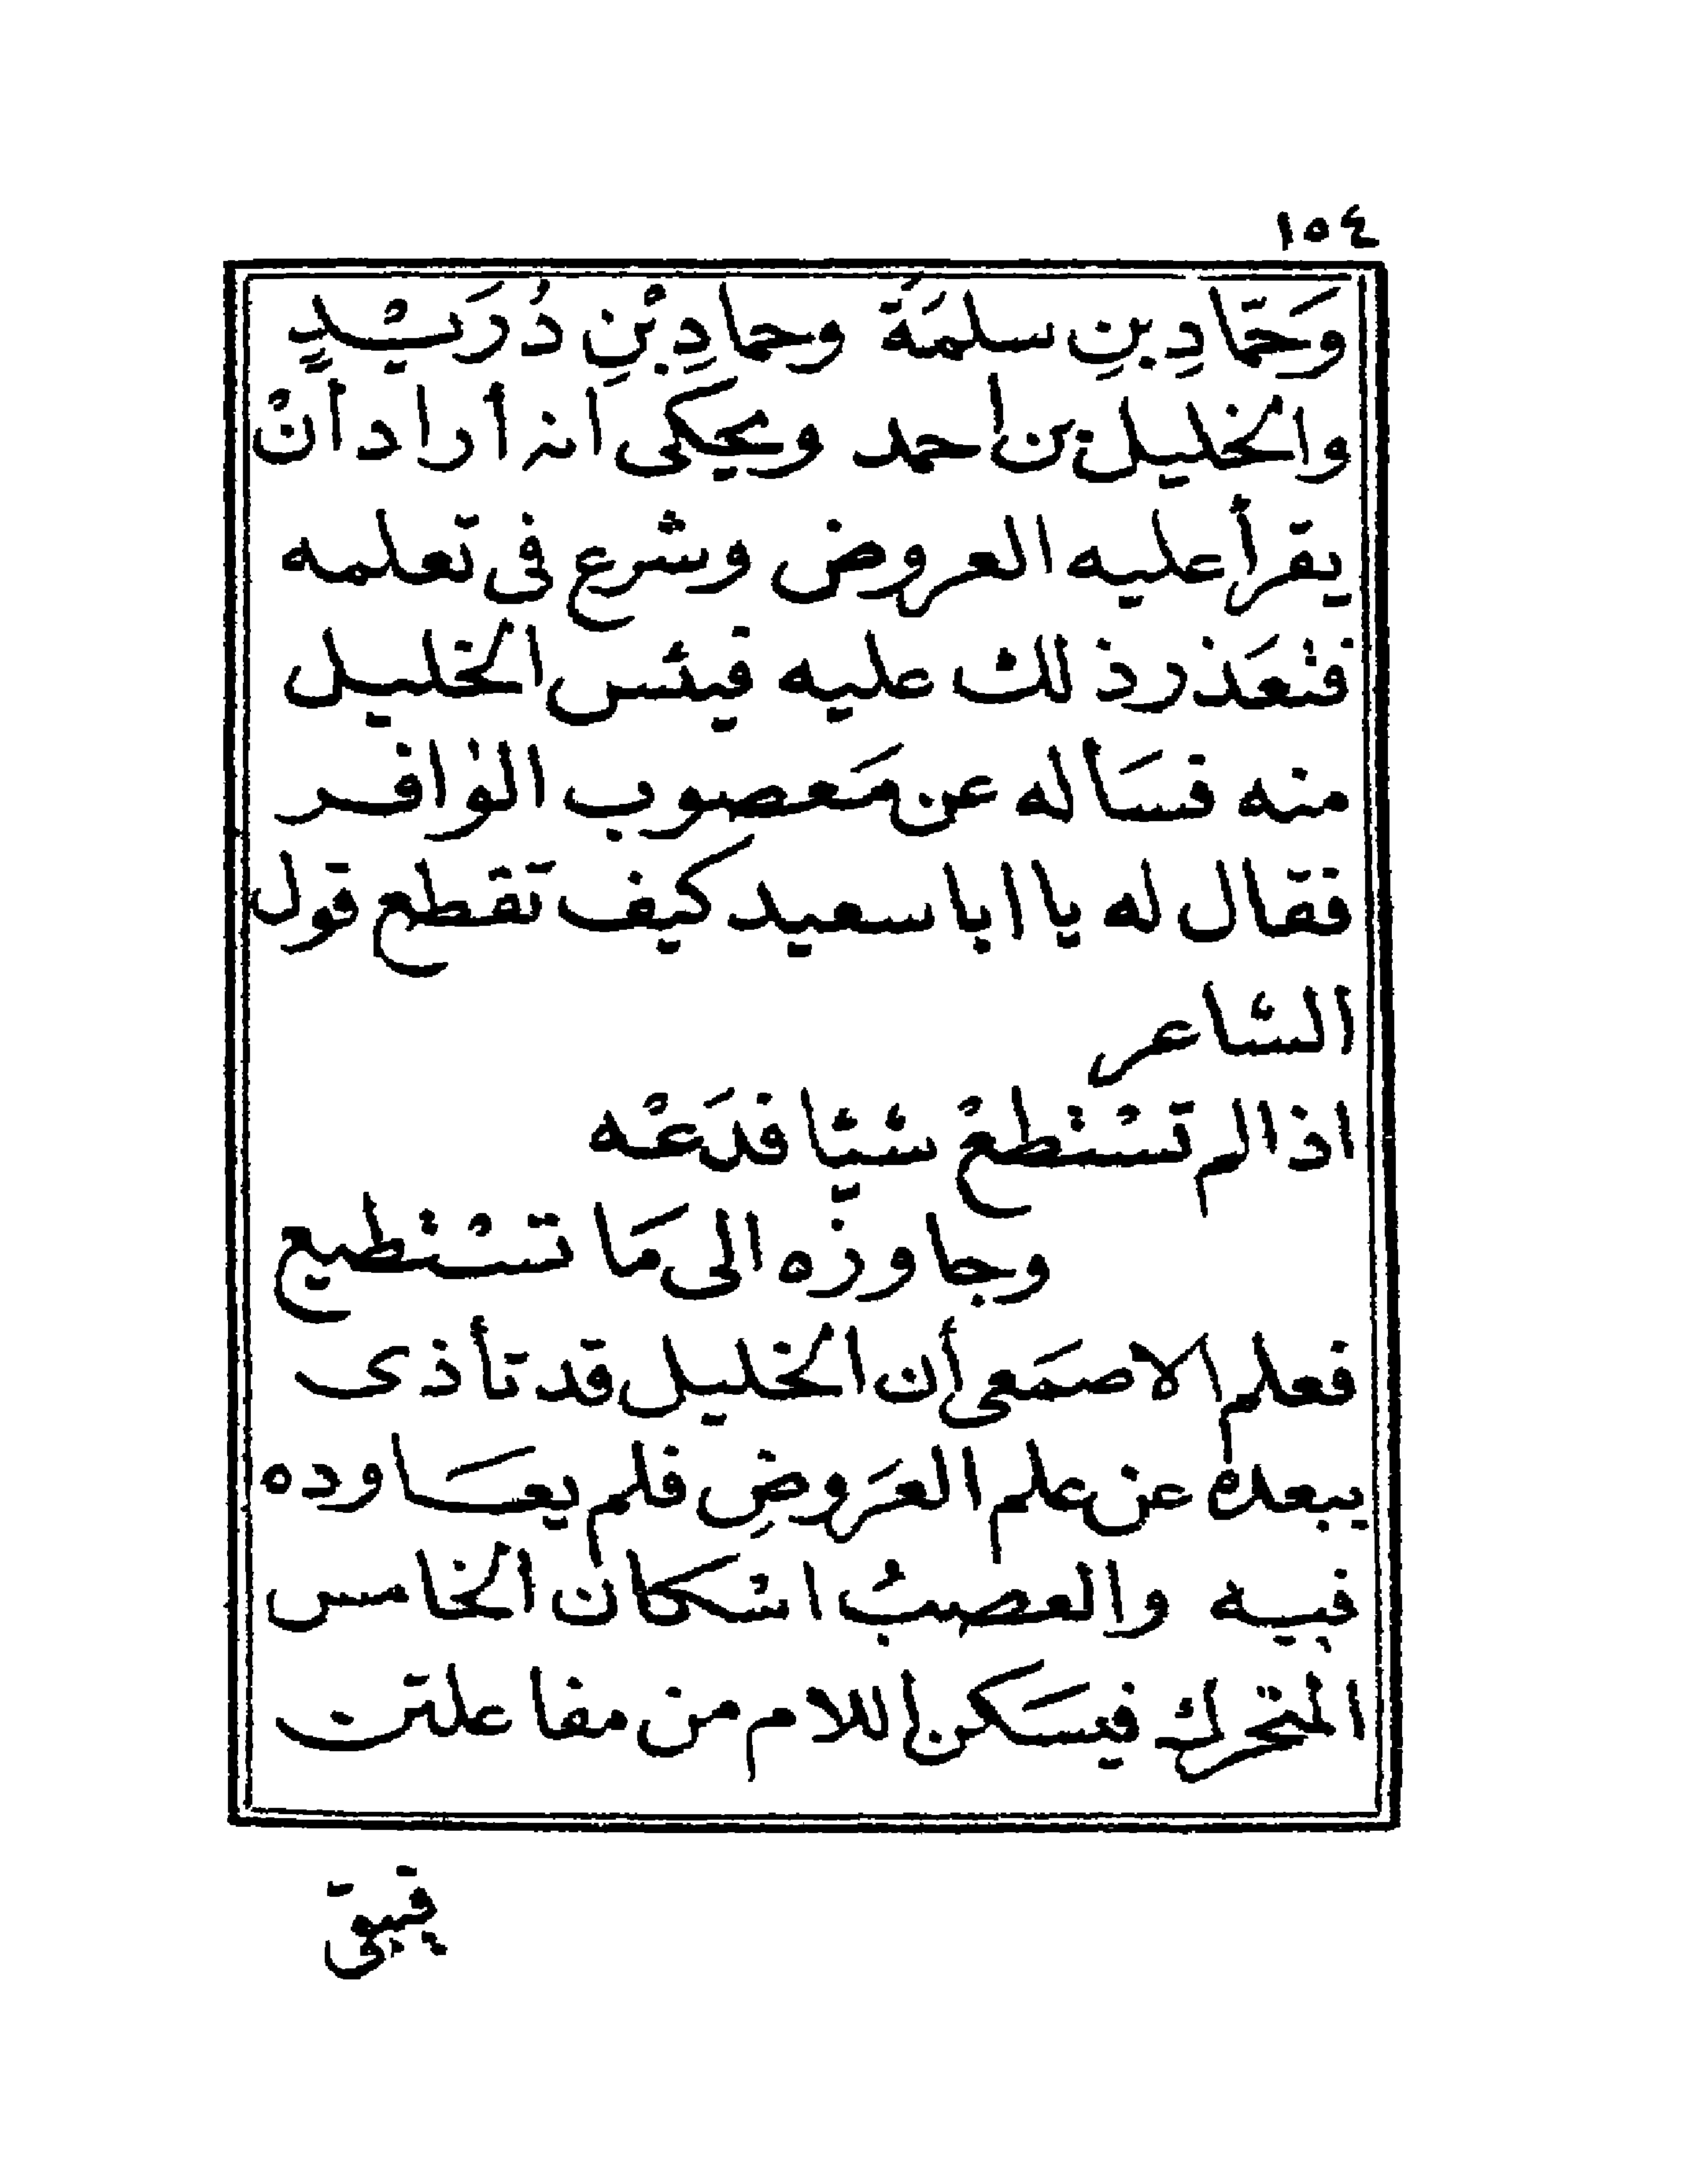 ١٥٤
وَحَمَّادِ بنِ سلمَةَ وحمادِ بْنِ دُرَيْدٍ
والخليل بن أحمد ويحكى أنه أراد أنْ
يقرأ عليه العروض وشرع فى تعلمه
فتعَذر ذلك عليه فيئس الخليل
منه فسَأله عن مَعصوب الوافر
فقال له يا ابا سعيد كيف تقطع قول
الشاعر
اذا لم تسْتطعْ شيًا فدَعْه
وجاوزْه الى مَا تسْتطيع
فعلم الاصمَعى أن الخليل قد تأذى
ببعده عن علم العَروضِ فلم يعَاوده
فيه والعصبُ اسْكان الخامس
المتحرك فيسَكن اللام من مفاعلتن
فيبقى